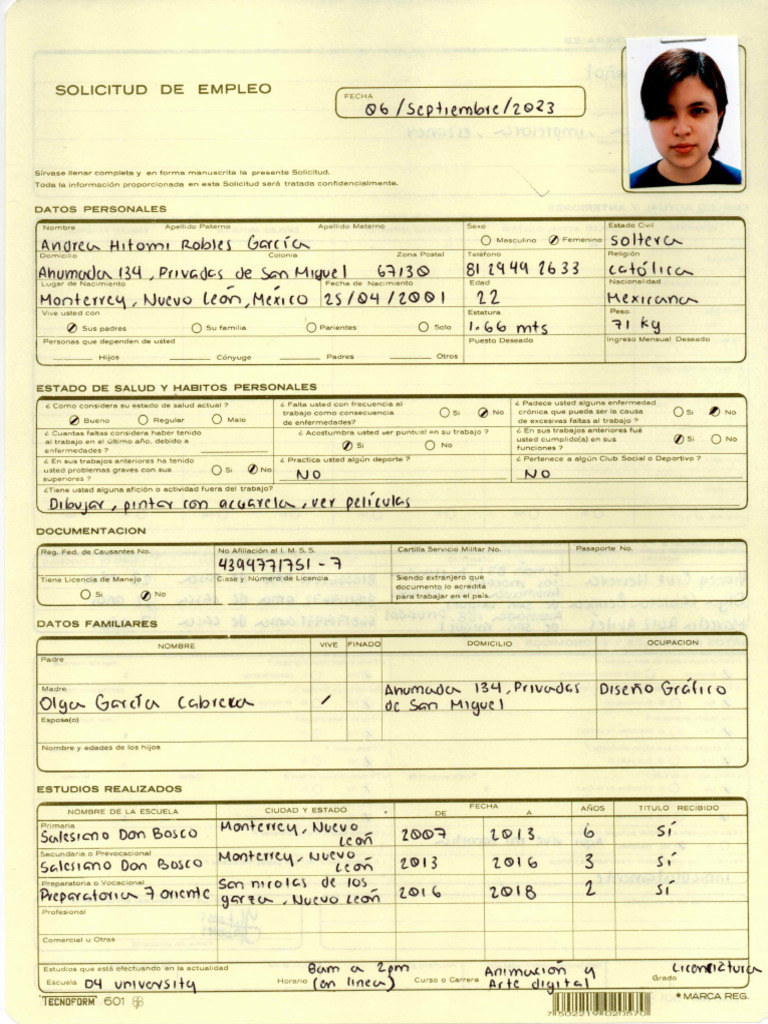 SOLICITUD DE EMPLEO
FECHA
06/Septiembre/2023
Sírvase llenar completa y en forma manuscrita la presente Solicitud.
Toda la información proporcionada en esta Solicitud será tratada confidencialmente.
DATOS PERSONALES
Nombre Apellido Paterno Apellido Materno Sexo Estado Civil
Andrea Hitomi Robles García Masculino Femenino soltera
Domicilio Colonia Zona Postal Teléfono Religión
Ahumada 134, Privadas de San Miguel 67130 81 2449 2633 católica
Lugar de Nacimiento Fecha de Nacimiento Edad Nacionalidad
Monterrey, Nuevo León, México 25/04/2001 22 Mexicana
Vive usted con Estatura Peso
Sus padres Su familia Parientes Solo 1.66 mts 71 kg
Personas que dependen de usted Puesto Deseado Ingreso Mensual Deseado
Hijos Cónyuge Padres Otros
ESTADO DE SALUD Y HABITOS PERSONALES
¿Como considera su estado de salud actual?
Bueno Regular Malo
¿Falta usted con frecuencia al
trabajo como consecuencia
de enfermedades? Si No
¿Padece usted alguna enfermedad
crónica que pueda ser la causa
de excesivas faltas al trabajo? Si No
¿Cuantas faltas considera haber tenido
al trabajo en el último año, debido a
enfermedades?
¿Acostumbra usted ser puntual en su trabajo?
Si No
¿En sus trabajos anteriores fué
usted cumplido(a) en sus
funciones? Si No
¿En sus trabajos anteriores ha tenido
usted problemas graves con sus
superiores? Si No
¿Practica usted algún deporte?
NO
¿Pertenece a algún Club Social o Deportivo?
NO
¿Tiene usted alguna afición o actividad fuera del trabajo?
Dibujar, pintar con acuarela, ver películas
DOCUMENTACION
Reg. Fed. de Causantes No. No Afiliación al I. M. S. S. Cartilla Servicio Militar No. Pasaporte No.
4394771751-7
Tiene Licencia de Manejo Clase y Número de Licencia
Si No
Siendo extranjero que
documento lo acredita
para trabajar en el país.
DATOS FAMILIARES
NOMBRE VIVE FINADO DOMICILIO OCUPACION
Padre
Madre
Olga García Cabrera / Ahumada 134, Privadas de San Miguel Diseño Gráfico
Esposa(o)
Nombre y edades de los hijos
ESTUDIOS REALIZADOS
NOMBRE DE LA ESCUELA CIUDAD Y ESTADO FECHA AÑOS TITULO RECIBIDO
DE A
Primaria
Salesiano Don Bosco Monterrey, Nuevo León 2007 2013 6 Sí
Secundaria o Prevocacional
Salesiano Don Bosco Monterrey, Nuevo León 2013 2016 3 Sí
Preparatoria o Vocacional
Preparatoria 7 oriente San nicolas de los garza, Nuevo León 2016 2018 2 Sí
Profesional
Comercial u Otras
Estudios que está efectuando en la actualidad
Escuela D4 university Horario 8am a 2pm (on linea) Curso o Carrera Animación y Arte digital Grado Licenciatura
"TECNOFORM" 601
7 502219 020570
* MARCA REG.